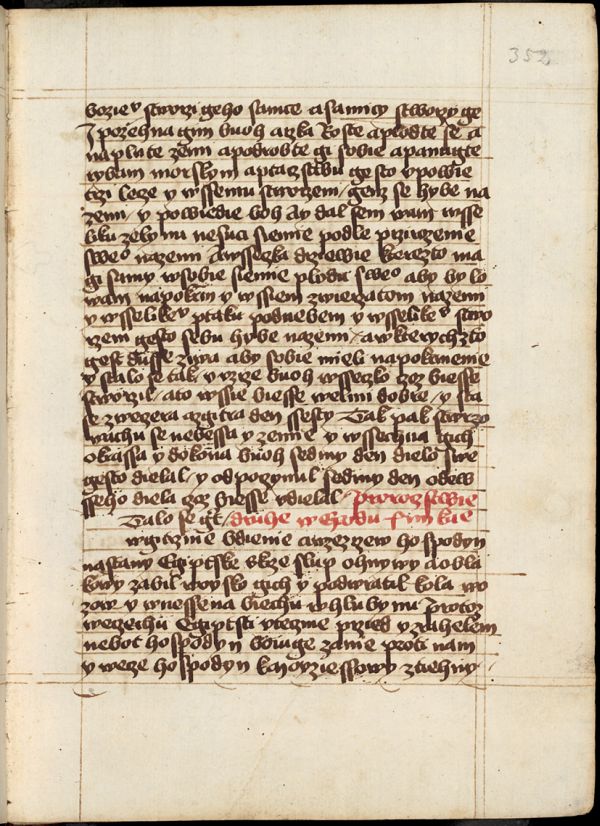 352
bozie v stworzi geho samce a samicy stworzy ge
J pozehna gym buoh a rzka Roste a plodte se a
naplnte zemi a podrobte gi sobie a panugte
rybam morskym a ptaczstwu gesto v powie
trzi leze y wssemu stworzeni genz se hybe na
zemi / y powiedie boh Ay dal sem wam wsse
liku zelynu nesuci siemie podle przirozenie
sweo na zemi A wsseczka drzewie kterezto ma
gi samy w sobie siemie plodu sweo aby bylo
wam na pokrm y wssiem zwierzatom na zemi
y wsselikev ptaku pod nebem y wsselikev stwo
rzeni gesto se hybe na zemi / a w kterychzto
gest dusse ziwa aby sobie mieli na pokrmenie
y stalo se tak / y vzrze buoh wsseczko czoz biesse
stworzil / a to wssie biesse welmi dobre / y sta
se z weczera a z gitra den ssesty Tak pak stworzy
wrchu se nebessa y zemie y wssechna gich
okrassa y dokona buoh sedmy den dielo swe
gesto dielal / y odpoczynul sedmy den od ew
sseho diela czoz biesse vdielal / Proroczstwie
Stalo se gt / druhe w Exodu
w gitrznie bdienie a wzezrzew hospodyn
na stany Egiptske skrze slup ohniwy a obla
kowy zabil woysko gich y podwratal kola wo
zow y wnessena biechu w hlubynu Protoz
wecechu Egiptsti vtecme przed yzrahelem
nebot hospodyn boiuge za nie proti nam
y wece hospodyn k moyziessowy ztiehny